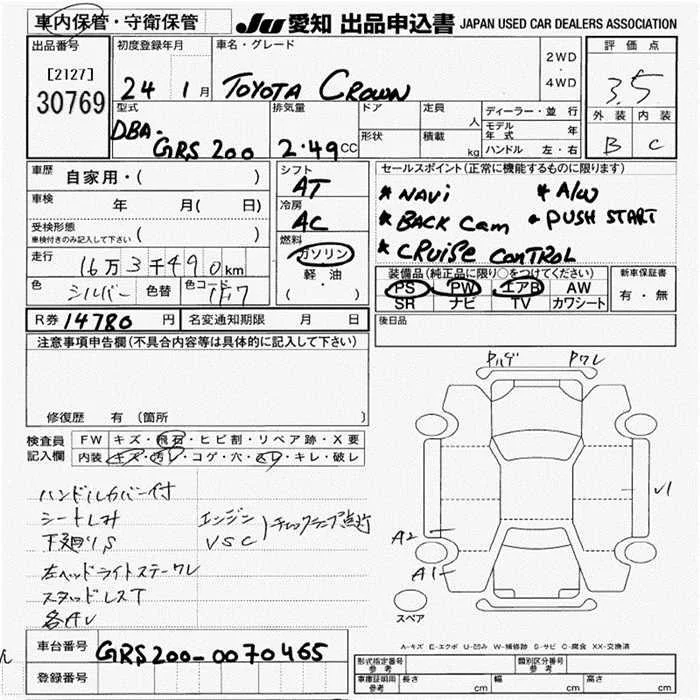 車内保管・守衛保管
JU 愛知 出品申込書 JAPAN USED CAR DEALERS ASSOCIATION
出品番号
[2127]
30769
初度登録年月
24 1月
車名・グレード
TOYOTA CROWN
2WD
・
4WD
評価点
3.5
外装 内装
B C
型式
DBA-
GRS200
排気量
2.49 CC
ドア
形状
定員 人
積載 kg
ディーラー・並行
モデル年式 年
ハンドル 左・右
車歴 自家用・( )
車検 年 月( 日)
受検形態
車検付きのみ記入して下さい ( )
走行 16万3千490km
色 シルバー 色替 色コード 1F7
シフト
AT
冷房
AC
燃料
ガソリン
軽・油
( ・ )
セールスポイント(正常に機能するものに限ります)
* NAVi * A/W
* BACK Cam * PUSH START
* CRUISE CONTROL
装備品(純正品に限り○をつけてください)
PS PW エアB AW
SR ナビ TV カワシート
新車保証書
有・無
R券 14780 円 名変通知期限 月 日
後日品
注意事項申告欄(不具合内容等は具体的に記入して下さい)
修復歴 有 (箇所 )
検査員記入欄
FW キズ・飛石・ヒビ割・リペア跡・X要
内装 キズ・汚レ・コゲ・穴・スレ・キレ・破レ
ハンドルカバー付
シートしみ
下廻りS
エンジン
VSC
チェックランプ点灯
左ヘッドライトステークレ
スタッドレスT
各AU
Pハゲ Pワレ
V1
A2
A1
スペア
A-キズ E-エクボ U-凹み W-補修跡 S-サビ C-腐食 XX-交換済
車台番号 GRS200-0070465
登録番号
形式指定番号 参考
類別区分番号 参考
車庫証明用 参考
長さ cm 幅 cm 高さ cm